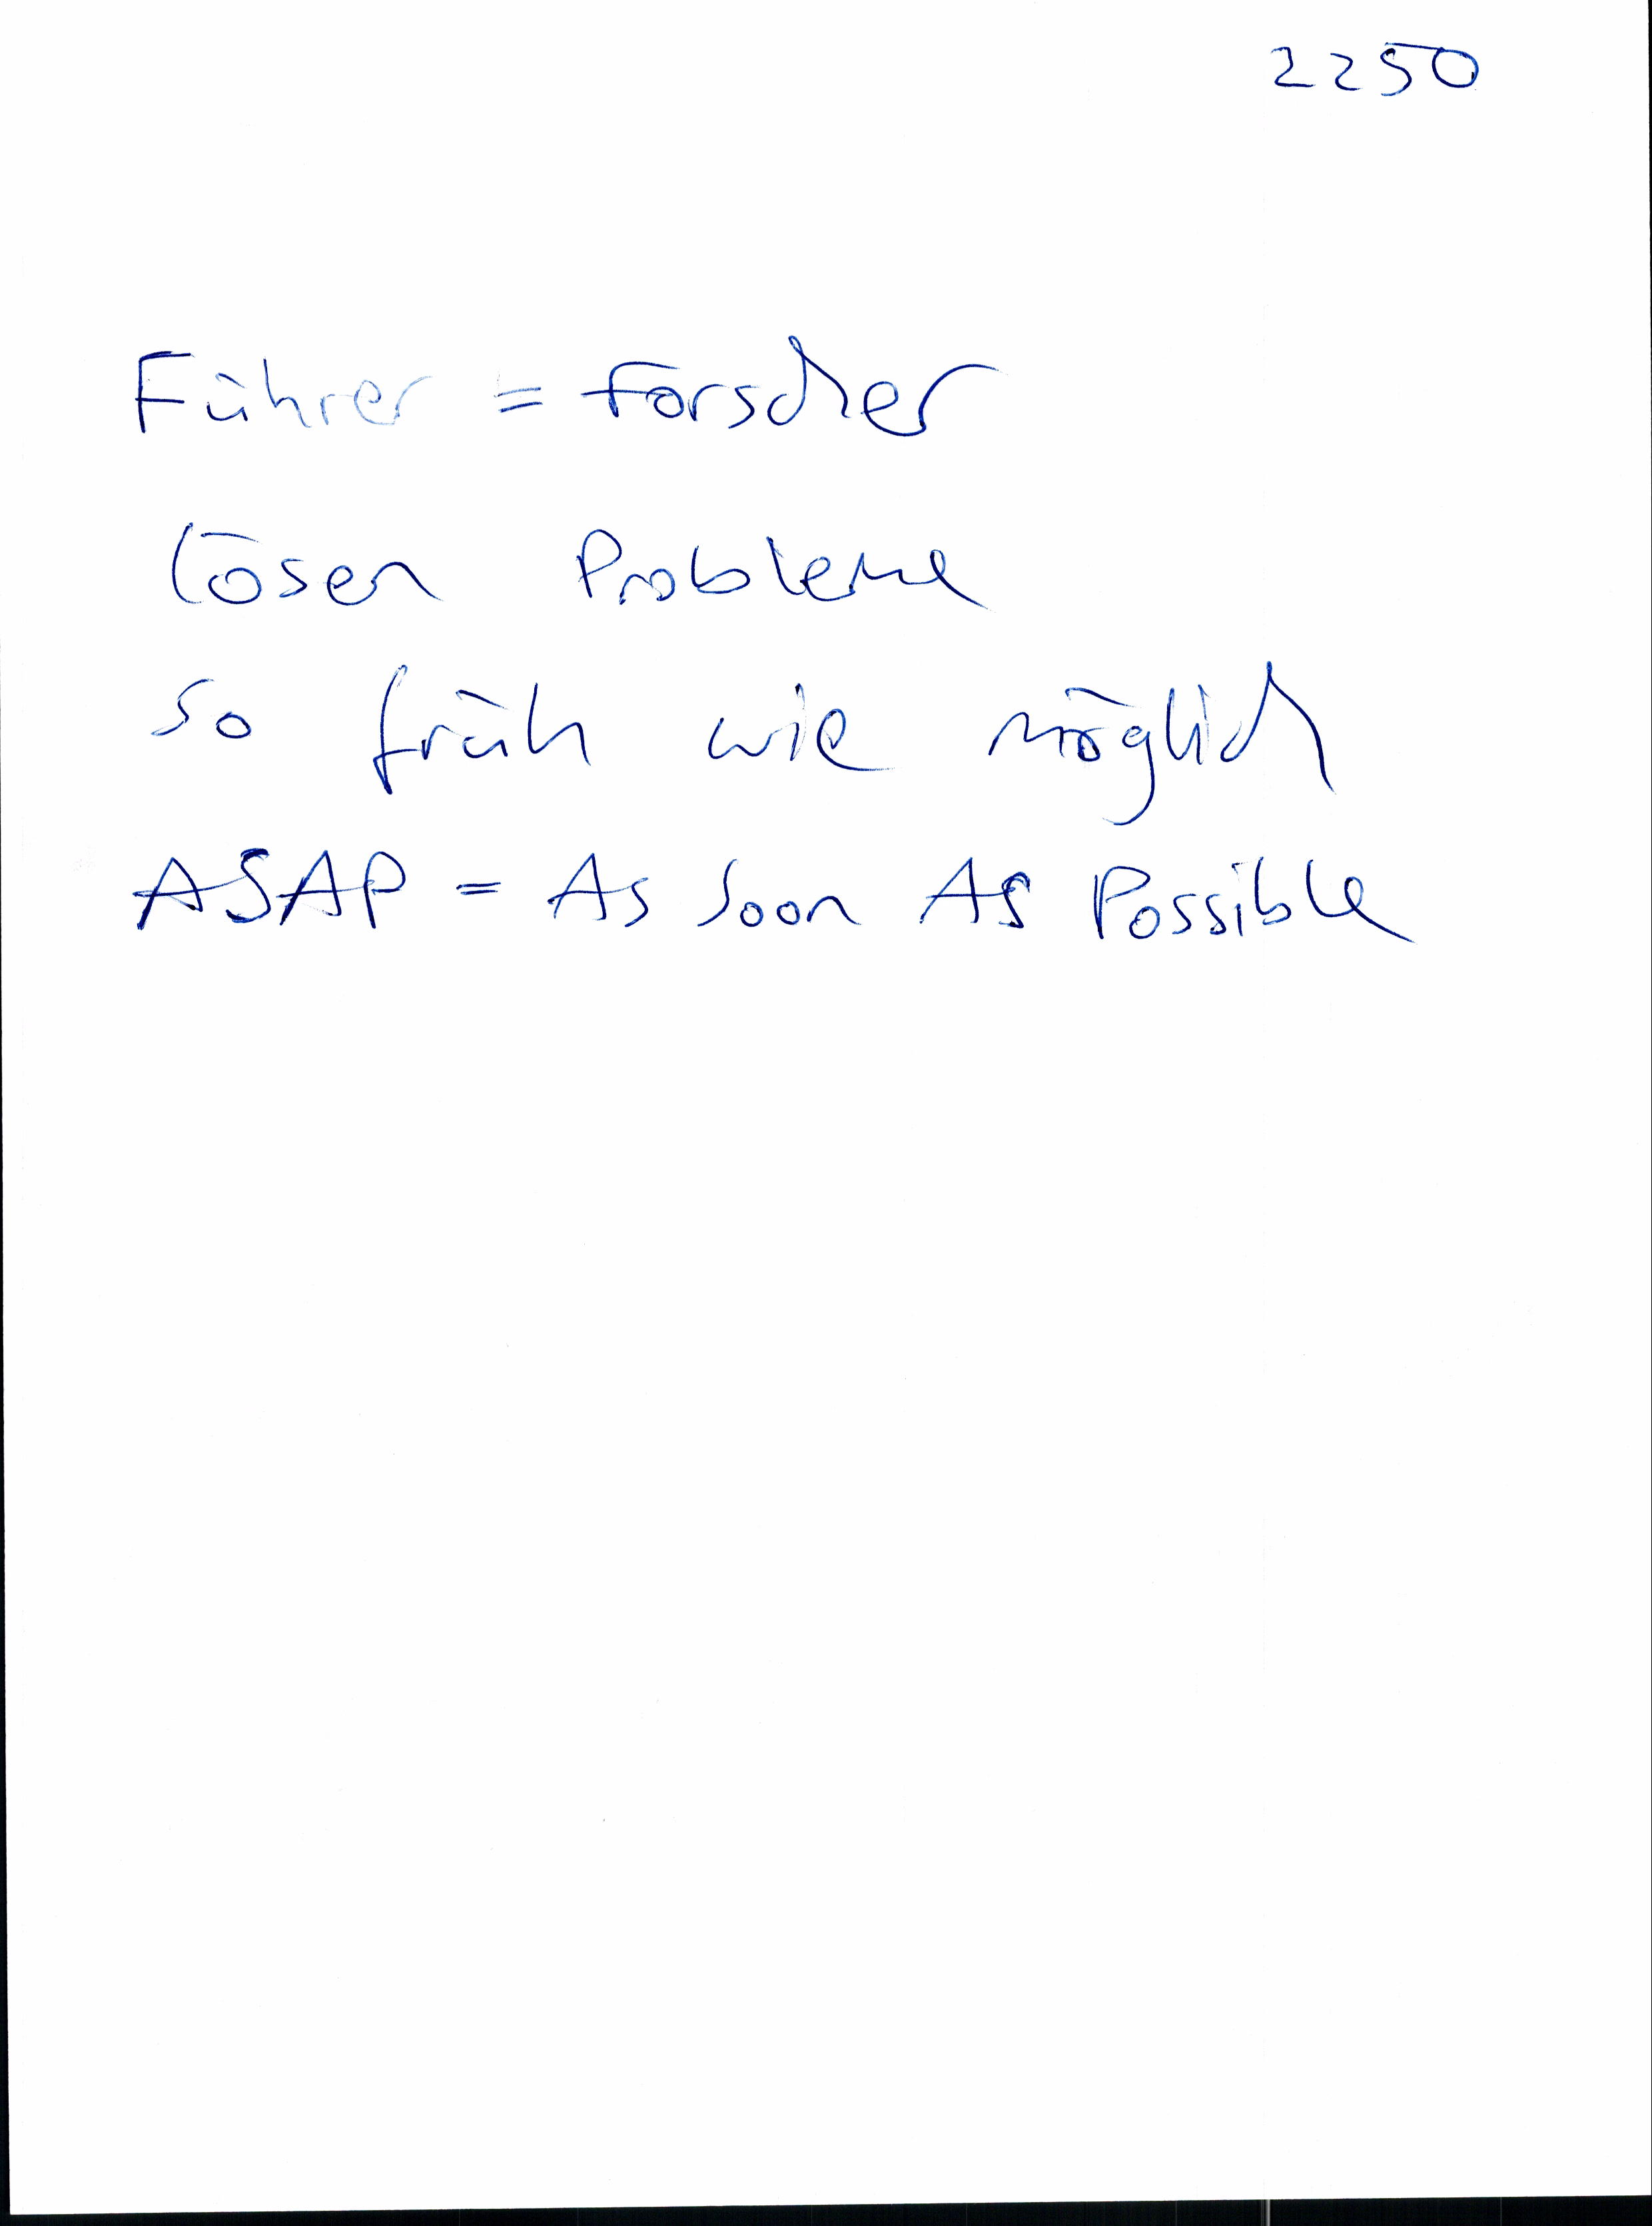 2250
Führer = Forscher
lösen Probleme
so früh wie möglich
ASAP = As Soon As Possible